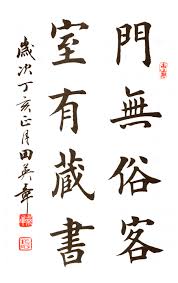 門無俗客
室有藏書
歲次丁亥正月田英章